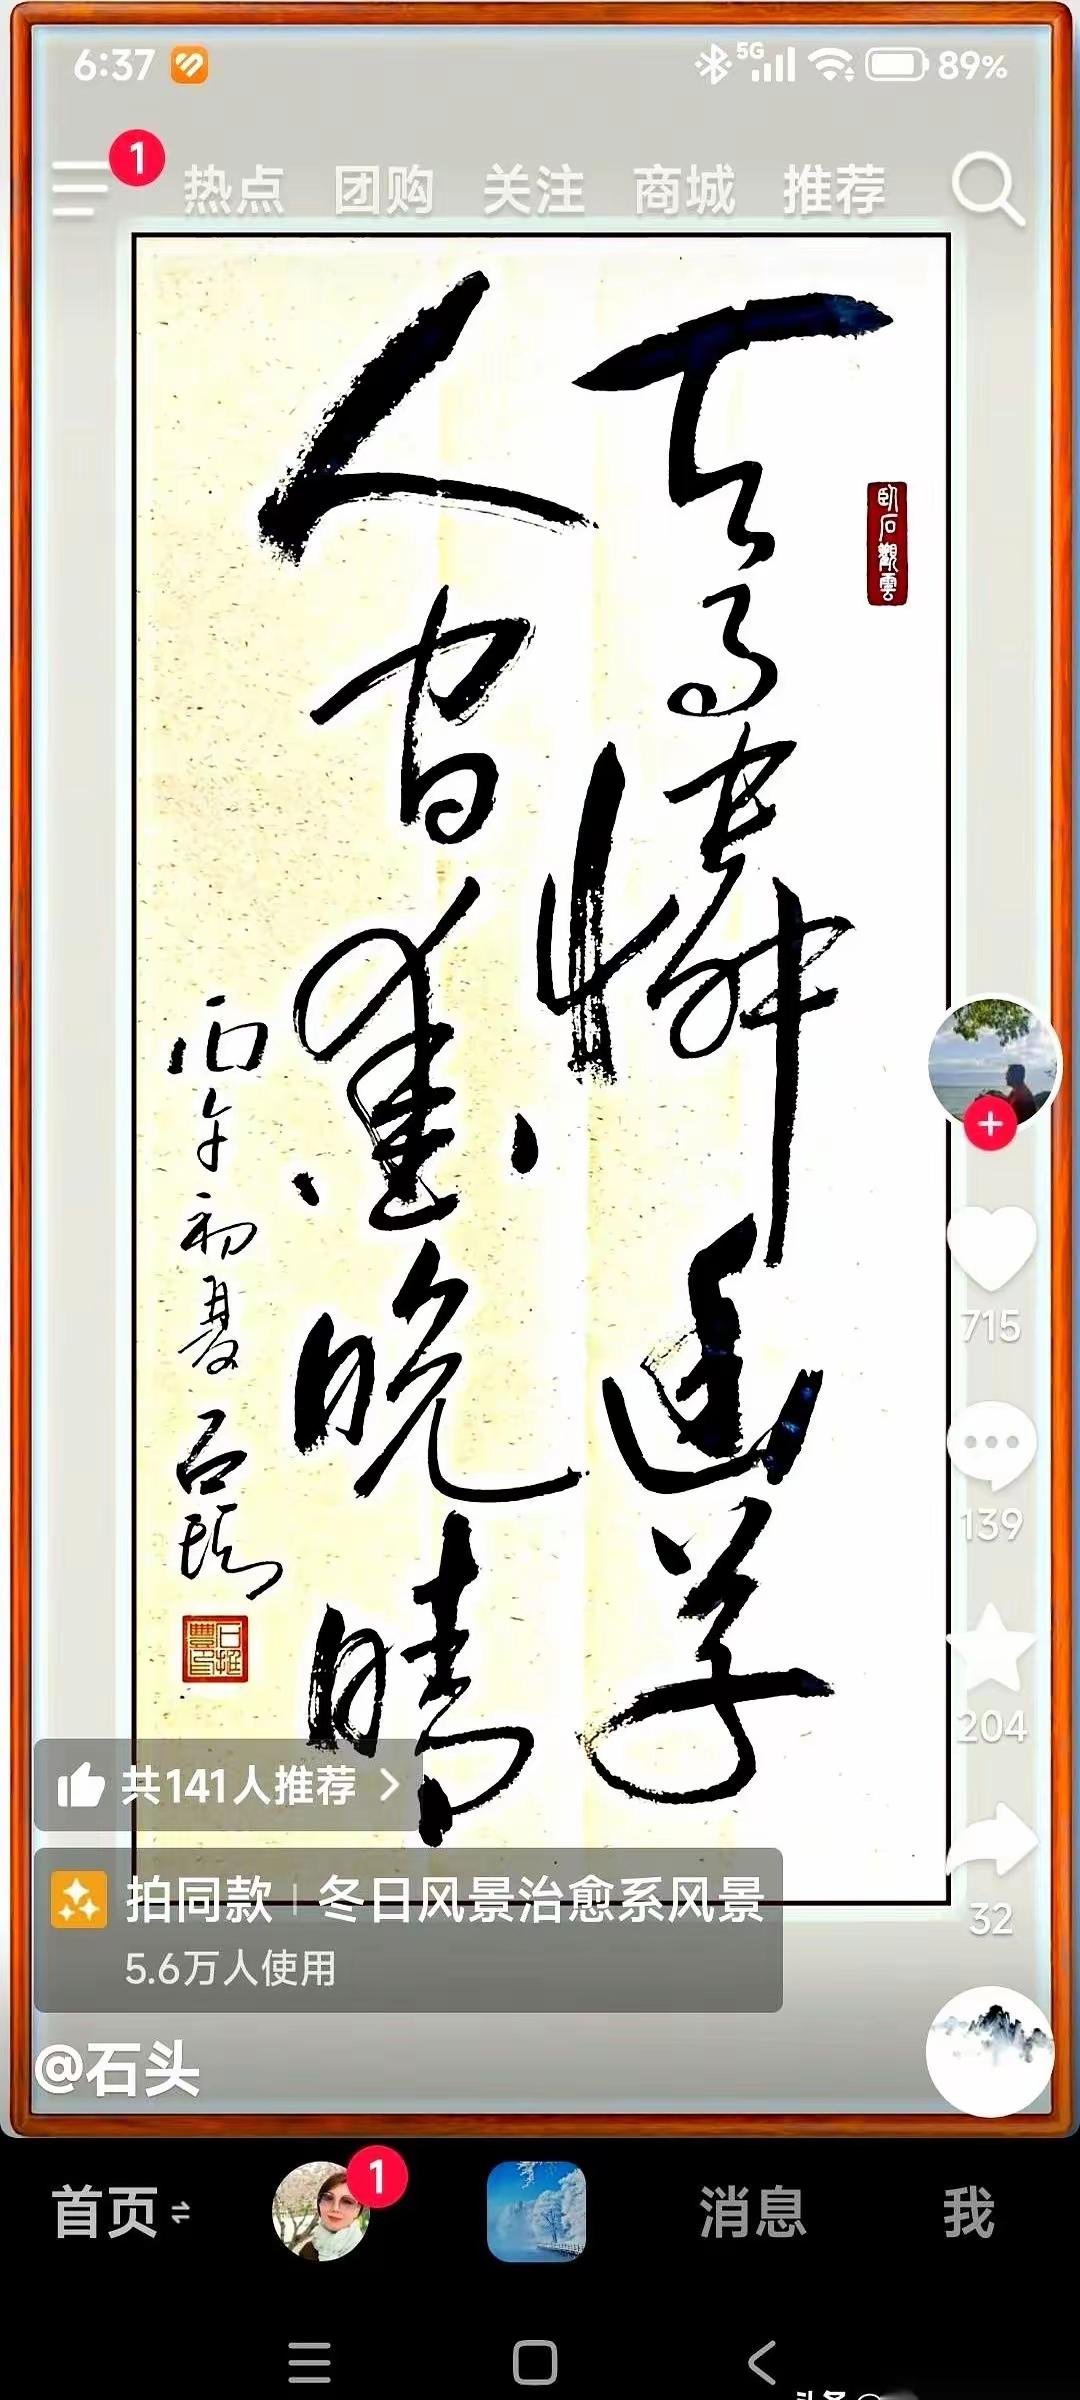 6:37
5G
89%
1
热点 团购 关注 商城 推荐
天意怜幽草
人间重晚晴
卧石觀雲
丙午初夏石
715
139
204
32
共141人推荐
拍同款 | 冬日风景治愈系风景
5.6万人使用
@石头
首页
1
消息
我